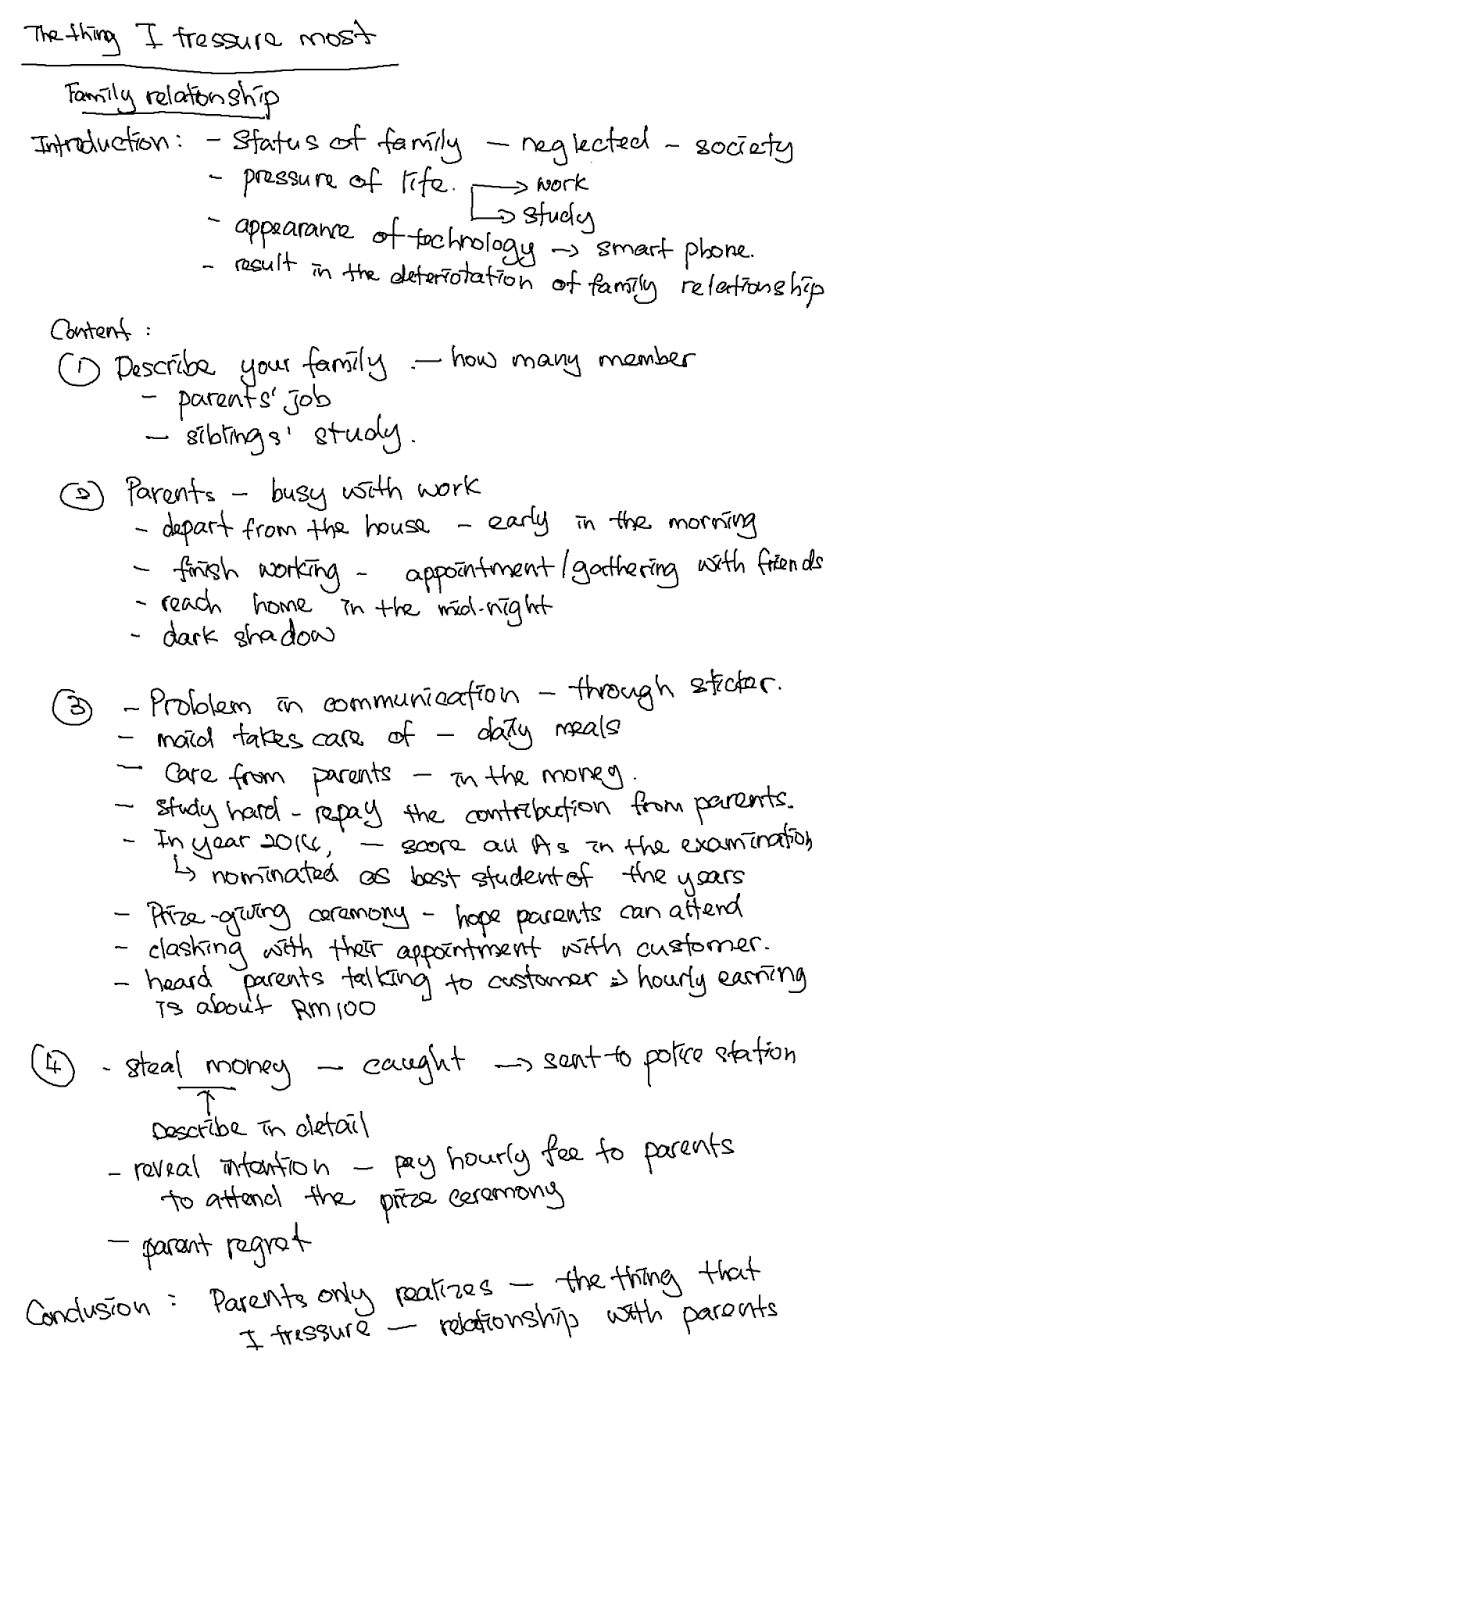 The thing I fressure most
Family relationship
Introduction: - Status of family - neglected - society
- pressure of life. → work
→ study
- appearance of technology → smart phone.
- result in the deteriotation of family relationship
Content :
① Describe your family . - how many member
- parents' job
- siblings' study.
② Parents - busy with work
- depart from the house - early in the morning
- finish working - appointment / gathering with friends
- reach home in the mid-night
- dark shadow
③ - Problem in communication - through sticker.
- maid takes care of - daily meals
- Care from parents - in the money.
- study hard - repay the contribution from parents.
- In year 2014, - score all As in the examination
↳ nominated as best student of the years
- Prize-giving ceremony - hope parents can attend
- clashing with their appointment with customer.
- heard parents talking to customer ⇒ hourly earning
is about RM100
④ - steal money - caught → sent to police station
↑
Describe in detail
- reveal intention - pay hourly fee to parents
to attend the prize ceremony
- parent regret
Conclusion : Parents only realizes - the thing that
I fressure - relationship with parents